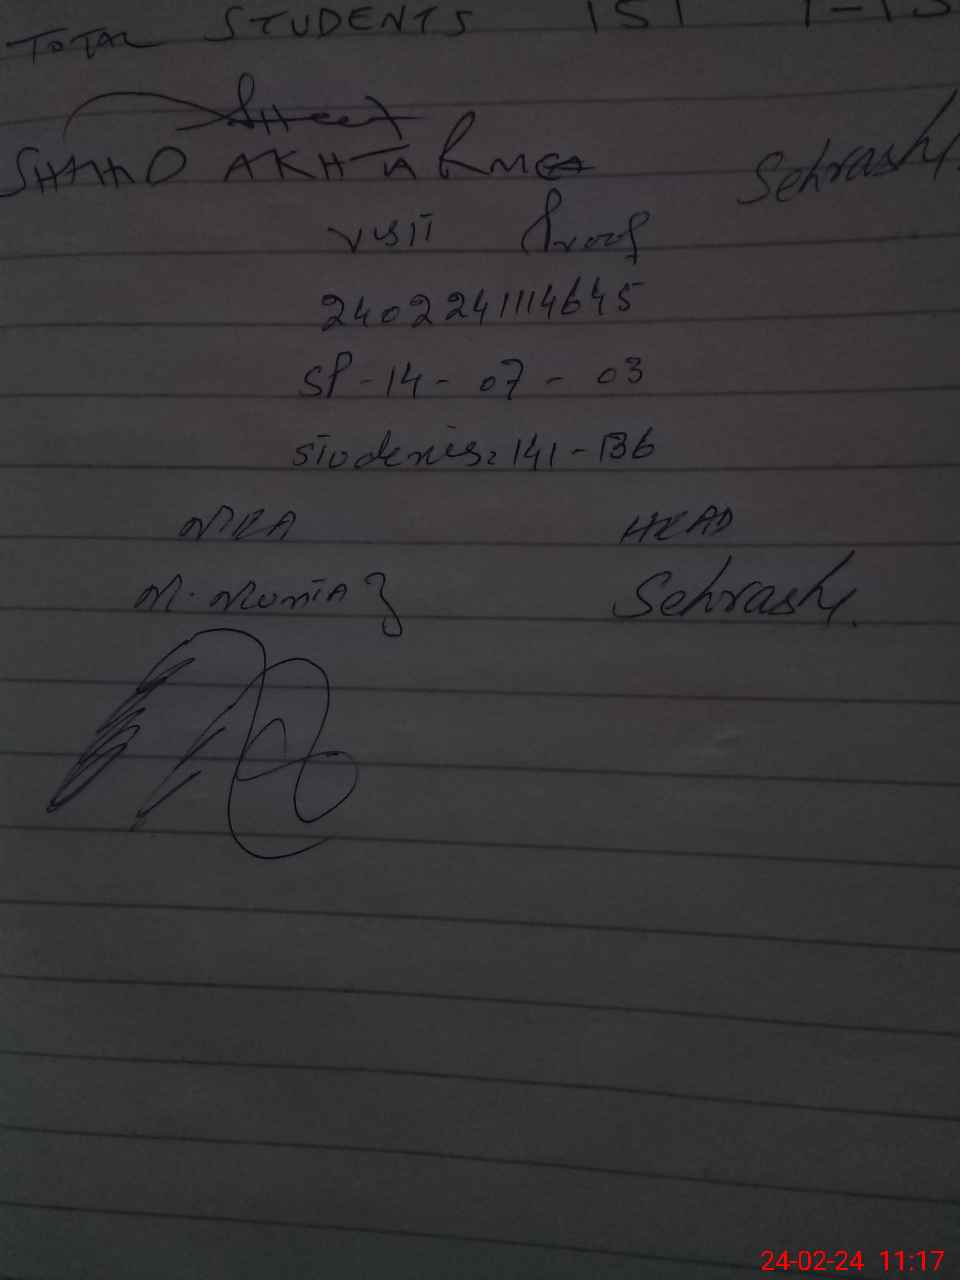 TOTAL STUDENTS 151
SHAHO AKHTAR MEA Sehrash
VISIT Proof
2402241114645
SP-14-07-03
Students: 141-136
MEA HEAD
M. Momtaz Sehrash
24-02-24 11:17